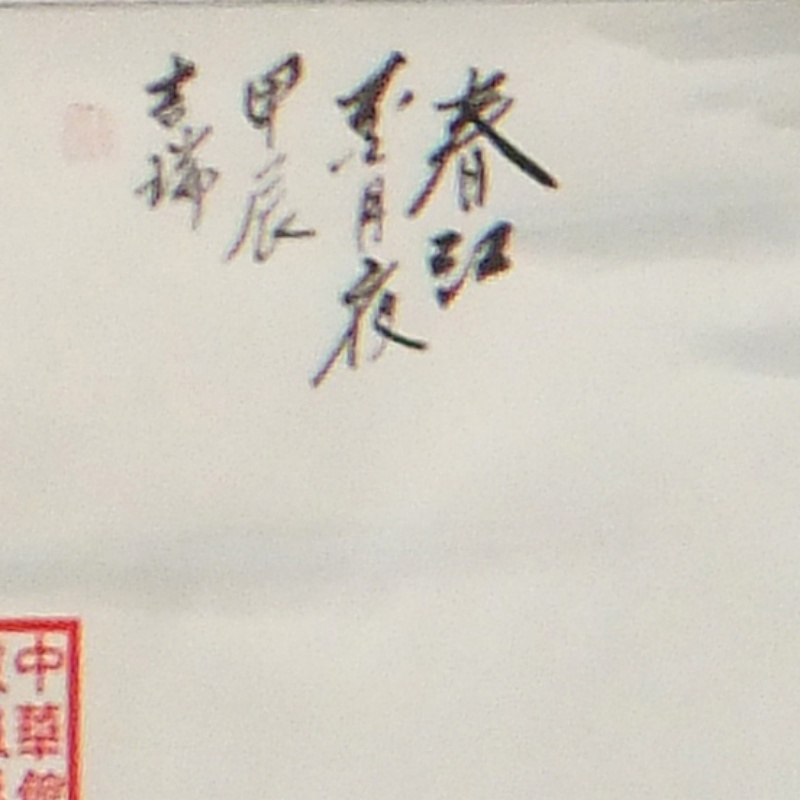 春江
月夜
甲辰
吉瑞
中華